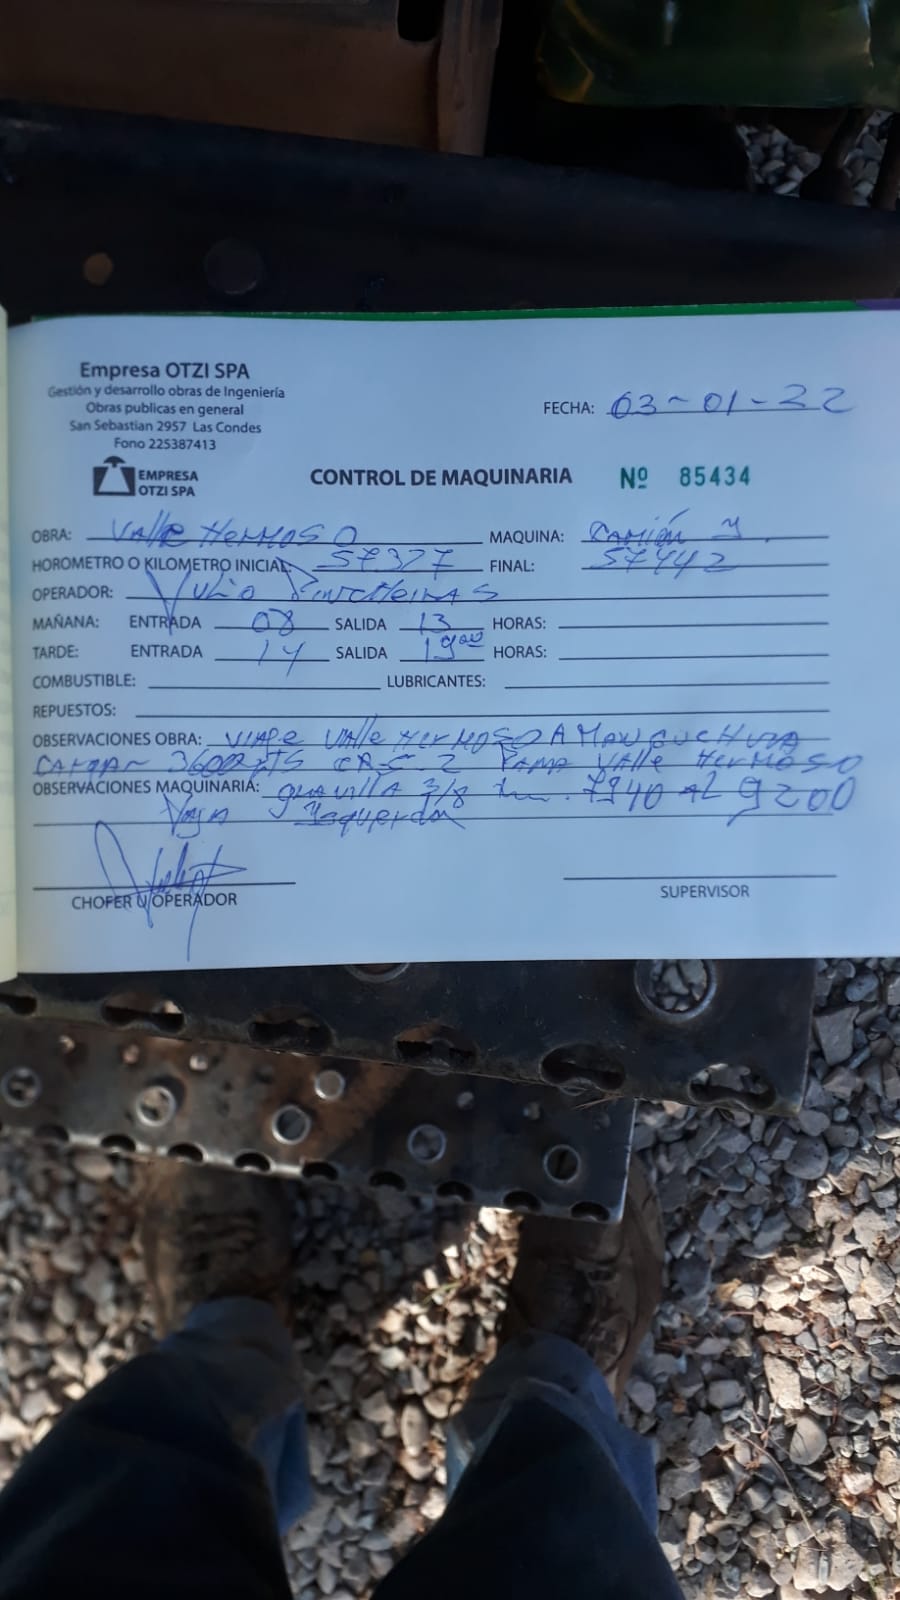 Empresa OTZI SPA
Gestión y desarrollo obras de Ingeniería
Obras publicas en general
San Sebastian 2957 Las Condes
Fono 225387413
FECHA: 03-01-22
EMPRESA
OTZI SPA
CONTROL DE MAQUINARIA Nº 85434
OBRA: Valle Hermoso MAQUINA: Camión
HOROMETRO O KILOMETRO INICIAL: 57.327 FINAL: 57442
OPERADOR: Julio
MAÑANA: ENTRADA 08 SALIDA 13 HORAS:
TARDE: ENTRADA 14 SALIDA 19 00 HORAS:
COMBUSTIBLE: LUBRICANTES:
REPUESTOS:
OBSERVACIONES OBRA: Viaje Valle Hermoso A
3600 Lts Para Valle Hermoso
OBSERVACIONES MAQUINARIA: gravilla 3/8 7940 AL 9200
Izquerda
CHOFER U OPERADOR
SUPERVISOR